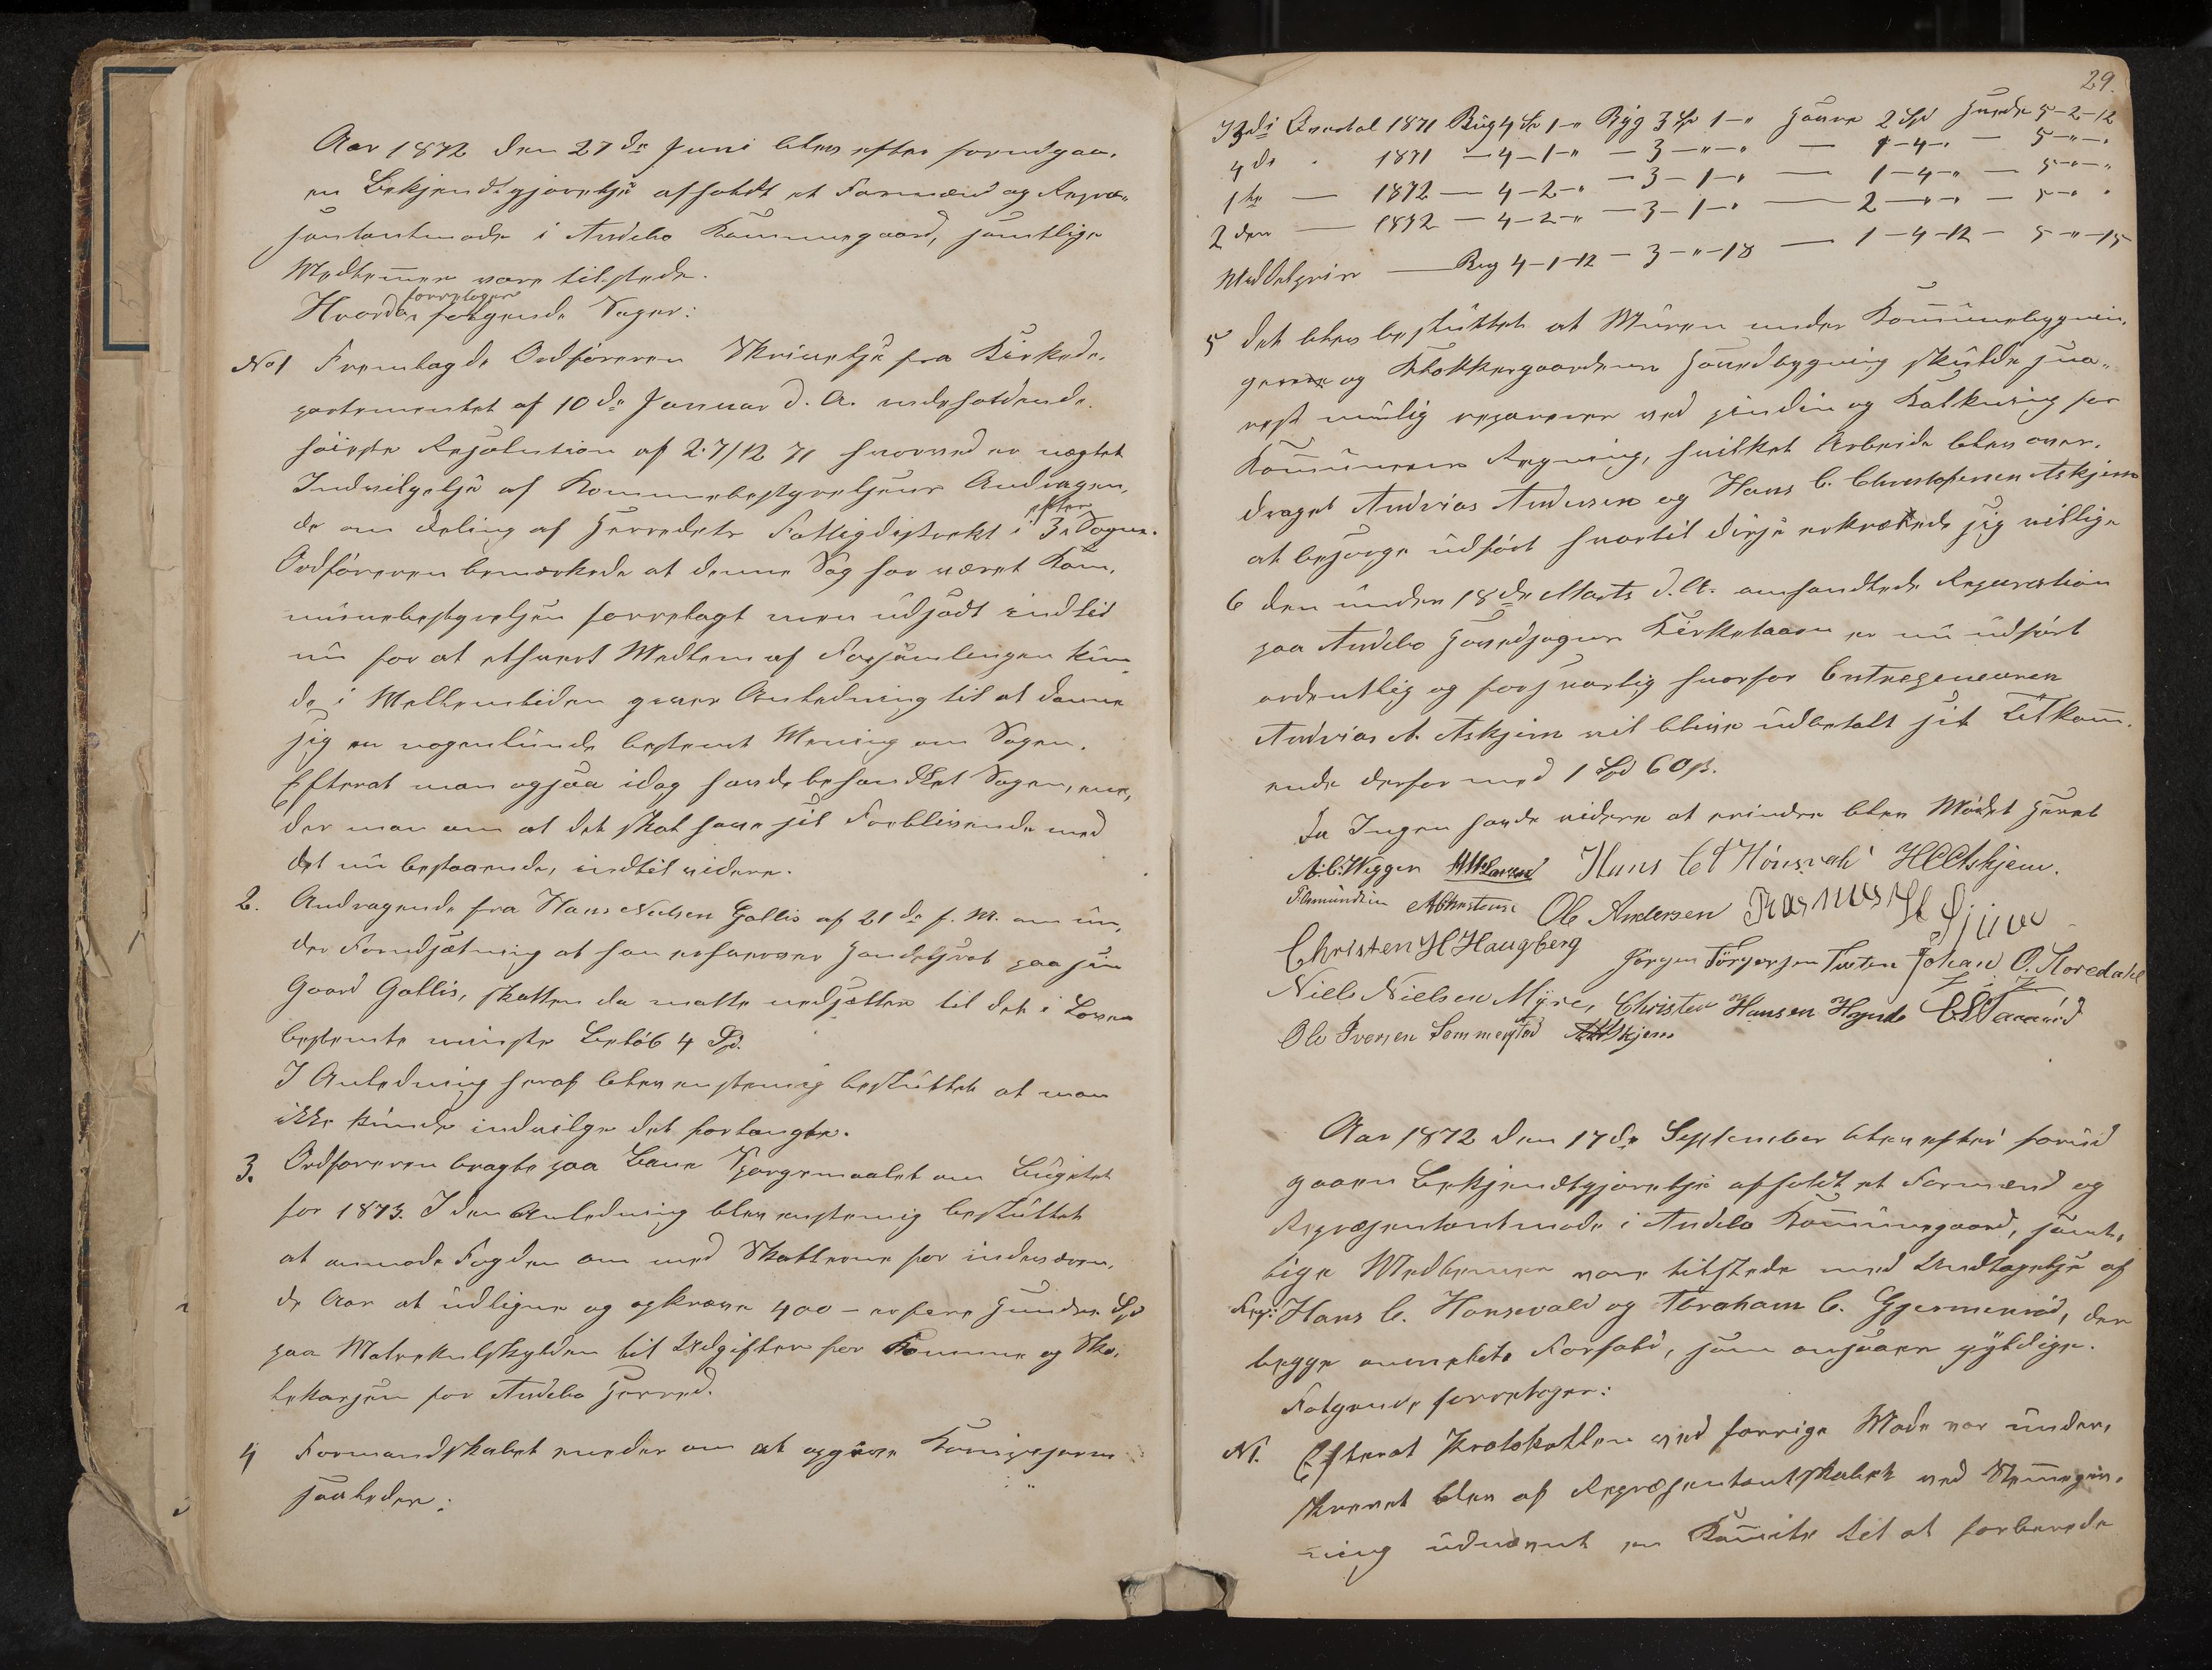 Aar 1872 den 27de Juni blev efter forudgaa-
en Bekjendtgjørelse afholdt et Formænd og Repræ-
sentantmøde i Andebo Kommunegaard, samtlige
Medlemmer vare tilstede.
Hvorda foretoges følgende Sager:
No 1 Fremlagde Ordføreren Skrivelse fra Kirkede-
partementet af 10de Januar d. A. indeholdende
høieste Resolution af 27/12 71 hvorved er nægtet
Indvilgelse af Kommunebestyrelsens Andragen-
de om deling af Herredets Fattigdistrekt i 3 efter Sogne.
Ordføreren bemærkede at denne Sag har været Kom-
munebestyrelsen forelagt men udsadt indtil
nu for at ethvert Medlem af Forsamlingen kun-
de i Mellemtiden gives Anledning til at danne
sig en nogenlunde bestemt Mening om Sagen.
Efterat man ogsaa idag havde behandlet Sagen, ene-
der man om at det skal have sit Forblivende med
det nu bestaaende, indtil videre.
2. Andragende fra Hans Nielsen Gallis af 21de f. M. om un-
der Forudsætning at han erhverver Handelsret paa sin
Gaard Gallis, skatten da maatte nedsættes til det i Loven
bestemte minste Beløb 4 Spd.
I Anledning heraf blev enstemig besluttet at man
ikke kunde indvilge det forlangte.
3. Ordføreren bragte paa Bane Spørgsmaalet om Bugetet
for 1873. I den Anledning blev enstemig besluttet
at anmode Fogden om med Skatterne for indeværen-
de Aar at udligne og opkræve 400 – er fire Hundre Spd
paa Matrekulskylden til Udgifter for Kommune og Sko-
lekassen for Andebo Herred.
4 Formandskabet eneder om at opgive Kornpriserne
saaledes:
29.
3die Qvartal 1871 Rug 4 Sp 1-" Byg 3 Sp 1-" Havre 2 Spd Hvede 5-2-12
4de - 1871 - 4-1-" - 3-"-" - 1-4-" - 5-"-"
1ste - 1872 - 4-2-" - 3-1-" - 1-4-" - 5-"-"
2den - 1872 - 4-2-" - 3-1-" - 2-"-" - 5-"-"
Middelpris - Rug 4-1-12 - 3-"-18 - 1-4-12 - 5-"-15
5 det blev besluttet at Muren under Kommunebygnin-
gerne og Klokkergaardens Hovedbygning skulde sna-
rest mulig repareres ved pinding og Kalkning for
Kommunens Regning, hvilket Arbeide blev over-
draget Andrias Andersen og Hans C. Christofersen Askjem
at besørge udført hvortil disse erklærede sig villige
6 den under 18de Marts d. A. omhandlede Reparation
paa Andebo Hovedsogns Kirketaarn er nu udført
ordentlig og forsvarlig hvorfor Entrepeneuren
Andrias A. Askjem vil blive udbetalt sit Tilkom-
ende derfor med 1 Spd 60 ß.
Da Ingen havde videre at erindre blev Mødet hævet
Hans C Hønsvald H C Askjem.
Ole Andersen Rasmus
Christen H Haugberg Jørgen Jørgensen Tveten Johan O. Moredahl
Niels Nielsen Myre, Christen Hansen Høynde
Ole Iversen Sommersted
Aar 1872 den 17de September blev efter forud
gaaen Bekjendtgjørelse afholdt et Formænd og
Repræsentantmøde i Andebo Kommunegaard, samt-
lige Medlemmer vare tilstede med Undtagelse af
Rep: Hans C. Honsevald og Abraham C. Gjermenrød, der
begge anmeldte Forfald, som ansaaes gyldige.
Følgende foretoges:
N1. Efterat Protokollen ved forrige Møde var under-
skrevet blev af Repræsentantskabet ved Stemmegiv-
ning udnævnt en Komite til at forberede